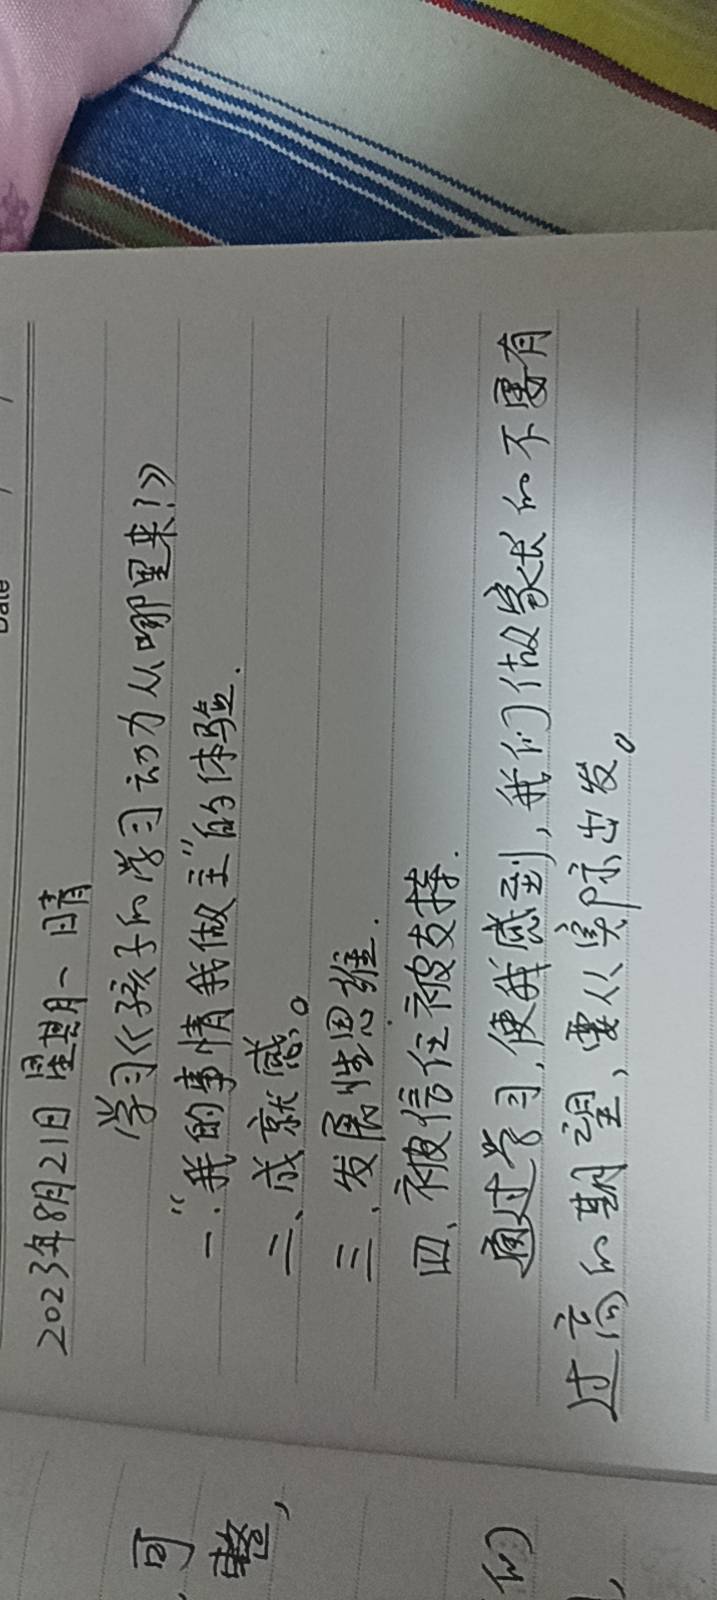 Date
2023年8月21日 星期一 晴
学习《孩子的学习动力从哪里来!》
一."我的事情我做主"的体验.
二、成就感。
三、发展性思维.
四、被信任被支持.
通过学习,使我感到,我们做家长的不要有
过高的期望、要从实际出发。
可
整,
的